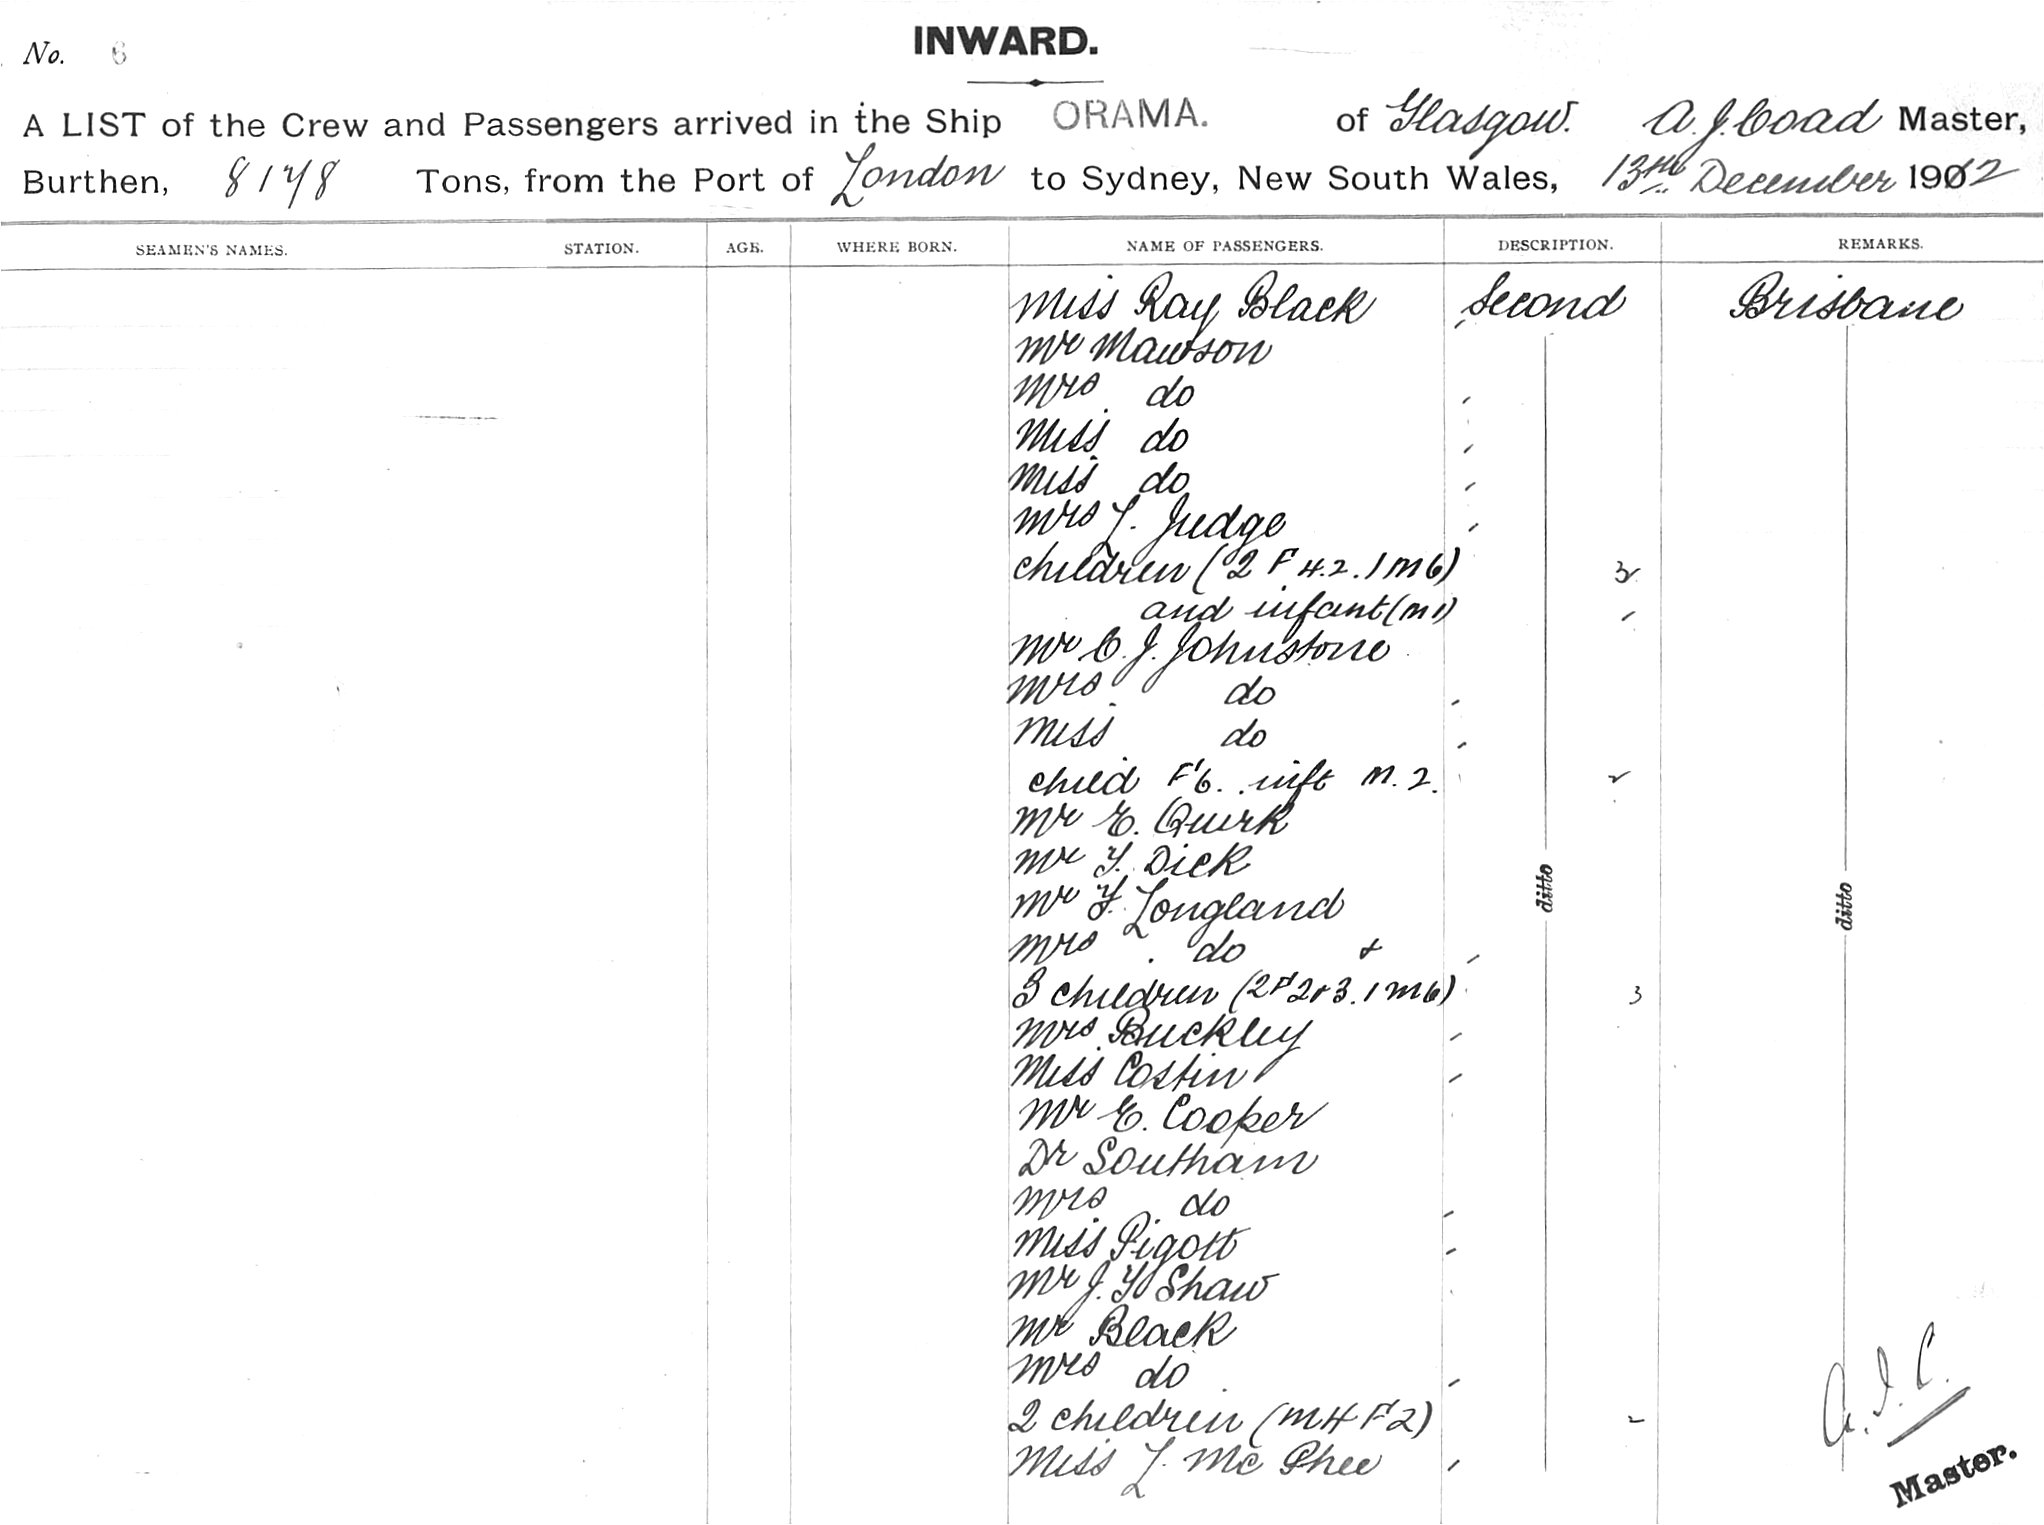 No. 6
INWARD.
A LIST of the Crew and Passengers arrived in the Ship ORAMA. of Glasgow. A. J. Coad Master,
Burthen, 8178 Tons, from the Port of London to Sydney, New South Wales, 13th December 1912
SEAMEN'S NAMES. STATION. AGE. WHERE BORN. NAME OF PASSENGERS. DESCRIPTION. REMARKS.
Miss Ray Black Second Brisbane
Mr Mawson
Mrs do
Miss do
Miss do
Mrs L. Judge
children (2 F 4.2. 1 M 6) 3
and infant (M 1)
Mr C. J. Johnstone
Mrs do
Miss do
child F 6. inft M. 2.
Mr E. Quirk
Mr Y. Dick
Mr F. Longland
Mrs do &
3 children (2 F 2 & 3. 1 M 6) 3
Mrs Buckley
Miss Costin
Mr E. Cooper
Dr Southam
Mrs do
Miss Pigott
Mr J. Y Shaw
Mr Black
Mrs do
2 children (M 4 F 2) 2
Miss L. Mc Phee
ditto
ditto
A. J. C.
Master.